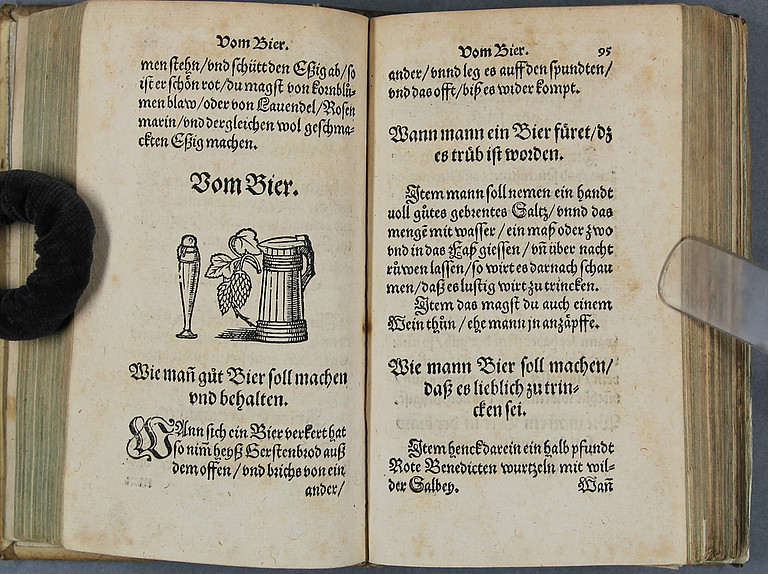 Vom Bier.
men stehn/vnd schütt den Eßig ab/so
ist er schön rot/du magst von kornblů-
men blaw/oder von Lauendel/Rosen
marin/vnd dergleichen wol geschma-
ckten Eßig machen.
Vom Bier.
Wie mañ gůt Bier soll machen
vnd behalten.
WAnn sich ein Bier verkert hat
so nim̃ heyß Gerstenbrod auß
dem offen/vnd brichs von ein
ander/
Vom Bier. 95
ander/vnnd leg es auff den spundten/
vnd das offt/biß es wider kompt.
Wann mann ein Bier füret/dz
es trůb ist worden.
Item mann soll nemen ein handt
uoll gůtes gebrentes Saltz/vnnd das
mengẽ mit wasser/ein maß oder zwo
vnd in das Faß giessen/vñ über nacht
růwen lassen/so wirt es darnach schau
men/daß es lustig wirt zu trincken.
Item das magst du auch einem
Wein thůn/ehe mann jn anzäpffe.
Wie mann Bier soll machen/
daß es lieblich zu trin-
cken sei.
Item henck darein ein halb pfundt
Rote Benedicten wurtzeln mit wil-
der Salbey. Wañ